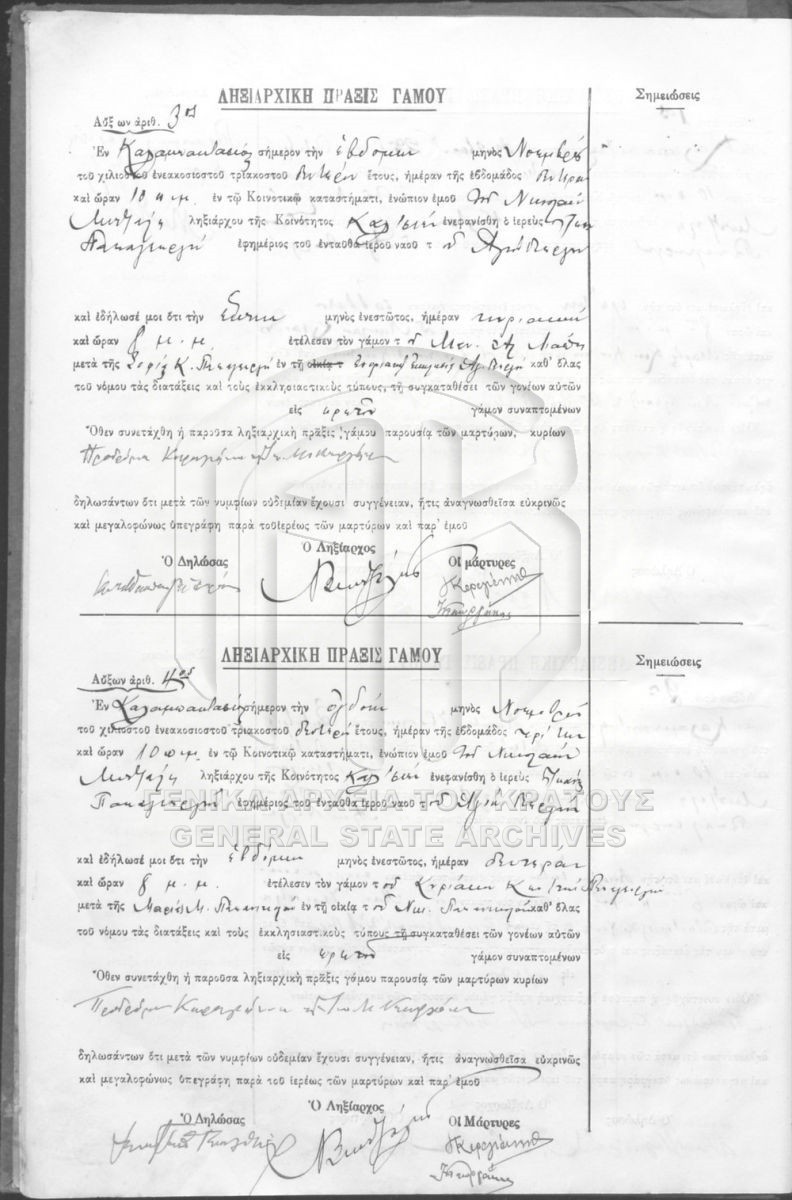 ΛΗΞΙΑΡΧΙΚΗ ΠΡΑΞΙΣ ΓΑΜΟΥ
Σημειώσεις
Αὔξων ἀριθ. 3ος
Ἐν σήμερον τὴν ἑβδόμην μηνὸς Νοεμβρίου
τοῦ χιλιοστοῦ ἐνεακοσιοστοῦ τριακοστοῦ δευτέρου ἔτους, ἡμέραν τῆς ἑβδομάδος Δευτέραν
καὶ ὥραν 10 π.μ. ἐν τῷ Κοινοτικῷ καταστήματι, ἐνώπιον ἐμοῦ τοῦ Νικολάου
ληξιάρχου τῆς Κοινότητος ἐνεφανίσθη ὁ ἱερεὺς
Παπαγεωργίου ἐφημέριος τοῦ ἐνταῦθα ἱεροῦ ναοῦ τοῦ Ἁγίου Γεωργίου
καὶ ἐδήλωσέ μοι ὅτι τὴν ἕκτην μηνὸς ἐνεστῶτος, ἡμέραν Κυριακὴν
καὶ ὥραν 8 μ.μ. ἐτέλεσεν τὸν γάμον τοῦ
μετὰ τῆς Σοφίας Κ. ἐν τῇ οἰκίᾳ τ καθ' ὅλας
τοῦ νόμου τὰς διατάξεις καὶ τοὺς ἐκκλησιαστικοὺς τύπους, τῇ συγκαταθέσει τῶν γονέων αὐτῶν
εἰς πρῶτον γάμον συναπτομένων
Ὅθεν συνετάχθη ἡ παροῦσα ληξιαρχικὴ πρᾶξις γάμου παρουσίᾳ τῶν μαρτύρων, κυρίων
Προδρόμου
δηλωσάντων ὅτι μετὰ τῶν νυμφίων οὐδεμίαν ἔχουσι συγγένειαν, ἥτις ἀναγνωσθεῖσα εὐκρινῶς
καὶ μεγαλοφώνως ὑπεγράφη παρὰ τοῦ ἱερέως τῶν μαρτύρων καὶ παρ' ἐμοῦ
Ὁ Δηλώσας Ὁ Ληξίαρχος Οἱ μάρτυρες
ΛΗΞΙΑΡΧΙΚΗ ΠΡΑΞΙΣ ΓΑΜΟΥ
Σημειώσεις
Αὔξων ἀριθ. 4ος
Ἐν σήμερον τὴν ὀγδόην μηνὸς Νοεμβρίου
τοῦ χιλιοστοῦ ἐνεακοσιοστοῦ τριακοστοῦ δευτέρου ἔτους, ἡμέραν τῆς ἑβδομάδος Τρίτην
καὶ ὥραν 10 π.μ. ἐν τῷ Κοινοτικῷ καταστήματι, ἐνώπιον ἐμοῦ τοῦ Νικολάου
ληξιάρχου τῆς Κοινότητος ἐνεφανίσθη ὁ ἱερεὺς
Παπαγεωργίου ἐφημέριος τοῦ ἐνταῦθα ἱεροῦ ναοῦ τοῦ Ἁγίου Γεωργίου
ΓΕΝΙΚΑ ΑΡΧΕΙΑ ΤΟΥ ΚΡΑΤΟΥΣ
GENERAL STATE ARCHIVES
καὶ ἐδήλωσέ μοι ὅτι τὴν ἑβδόμην μηνὸς ἐνεστῶτος, ἡμέραν Δευτέραν
καὶ ὥραν 8 μ.μ. ἐτέλεσεν τὸν γάμον τοῦ Κυριάκου
μετὰ τῆς Μαρίας Μ. ἐν τῇ οἰκίᾳ τοῦ Νικ. καθ' ὅλας
τοῦ νόμου τὰς διατάξεις καὶ τοὺς ἐκκλησιαστικοὺς τύπους τῇ συγκαταθέσει τῶν γονέων αὐτῶν
εἰς πρῶτον γάμον συναπτομένων
Ὅθεν συνετάχθη ἡ παροῦσα ληξιαρχικὴ πρᾶξις γάμου παρουσίᾳ τῶν μαρτύρων κυρίων
Προδρόμου
δηλωσάντων ὅτι μετὰ τῶν νυμφίων οὐδεμίαν ἔχουσι συγγένειαν, ἥτις ἀναγνωσθεῖσα εὐκρινῶς
καὶ μεγαλοφώνως ὑπεγράφη παρὰ τοῦ ἱερέως τῶν μαρτύρων καὶ παρ' ἐμοῦ
Ὁ Δηλώσας Ὁ Ληξίαρχος Οἱ Μάρτυρες